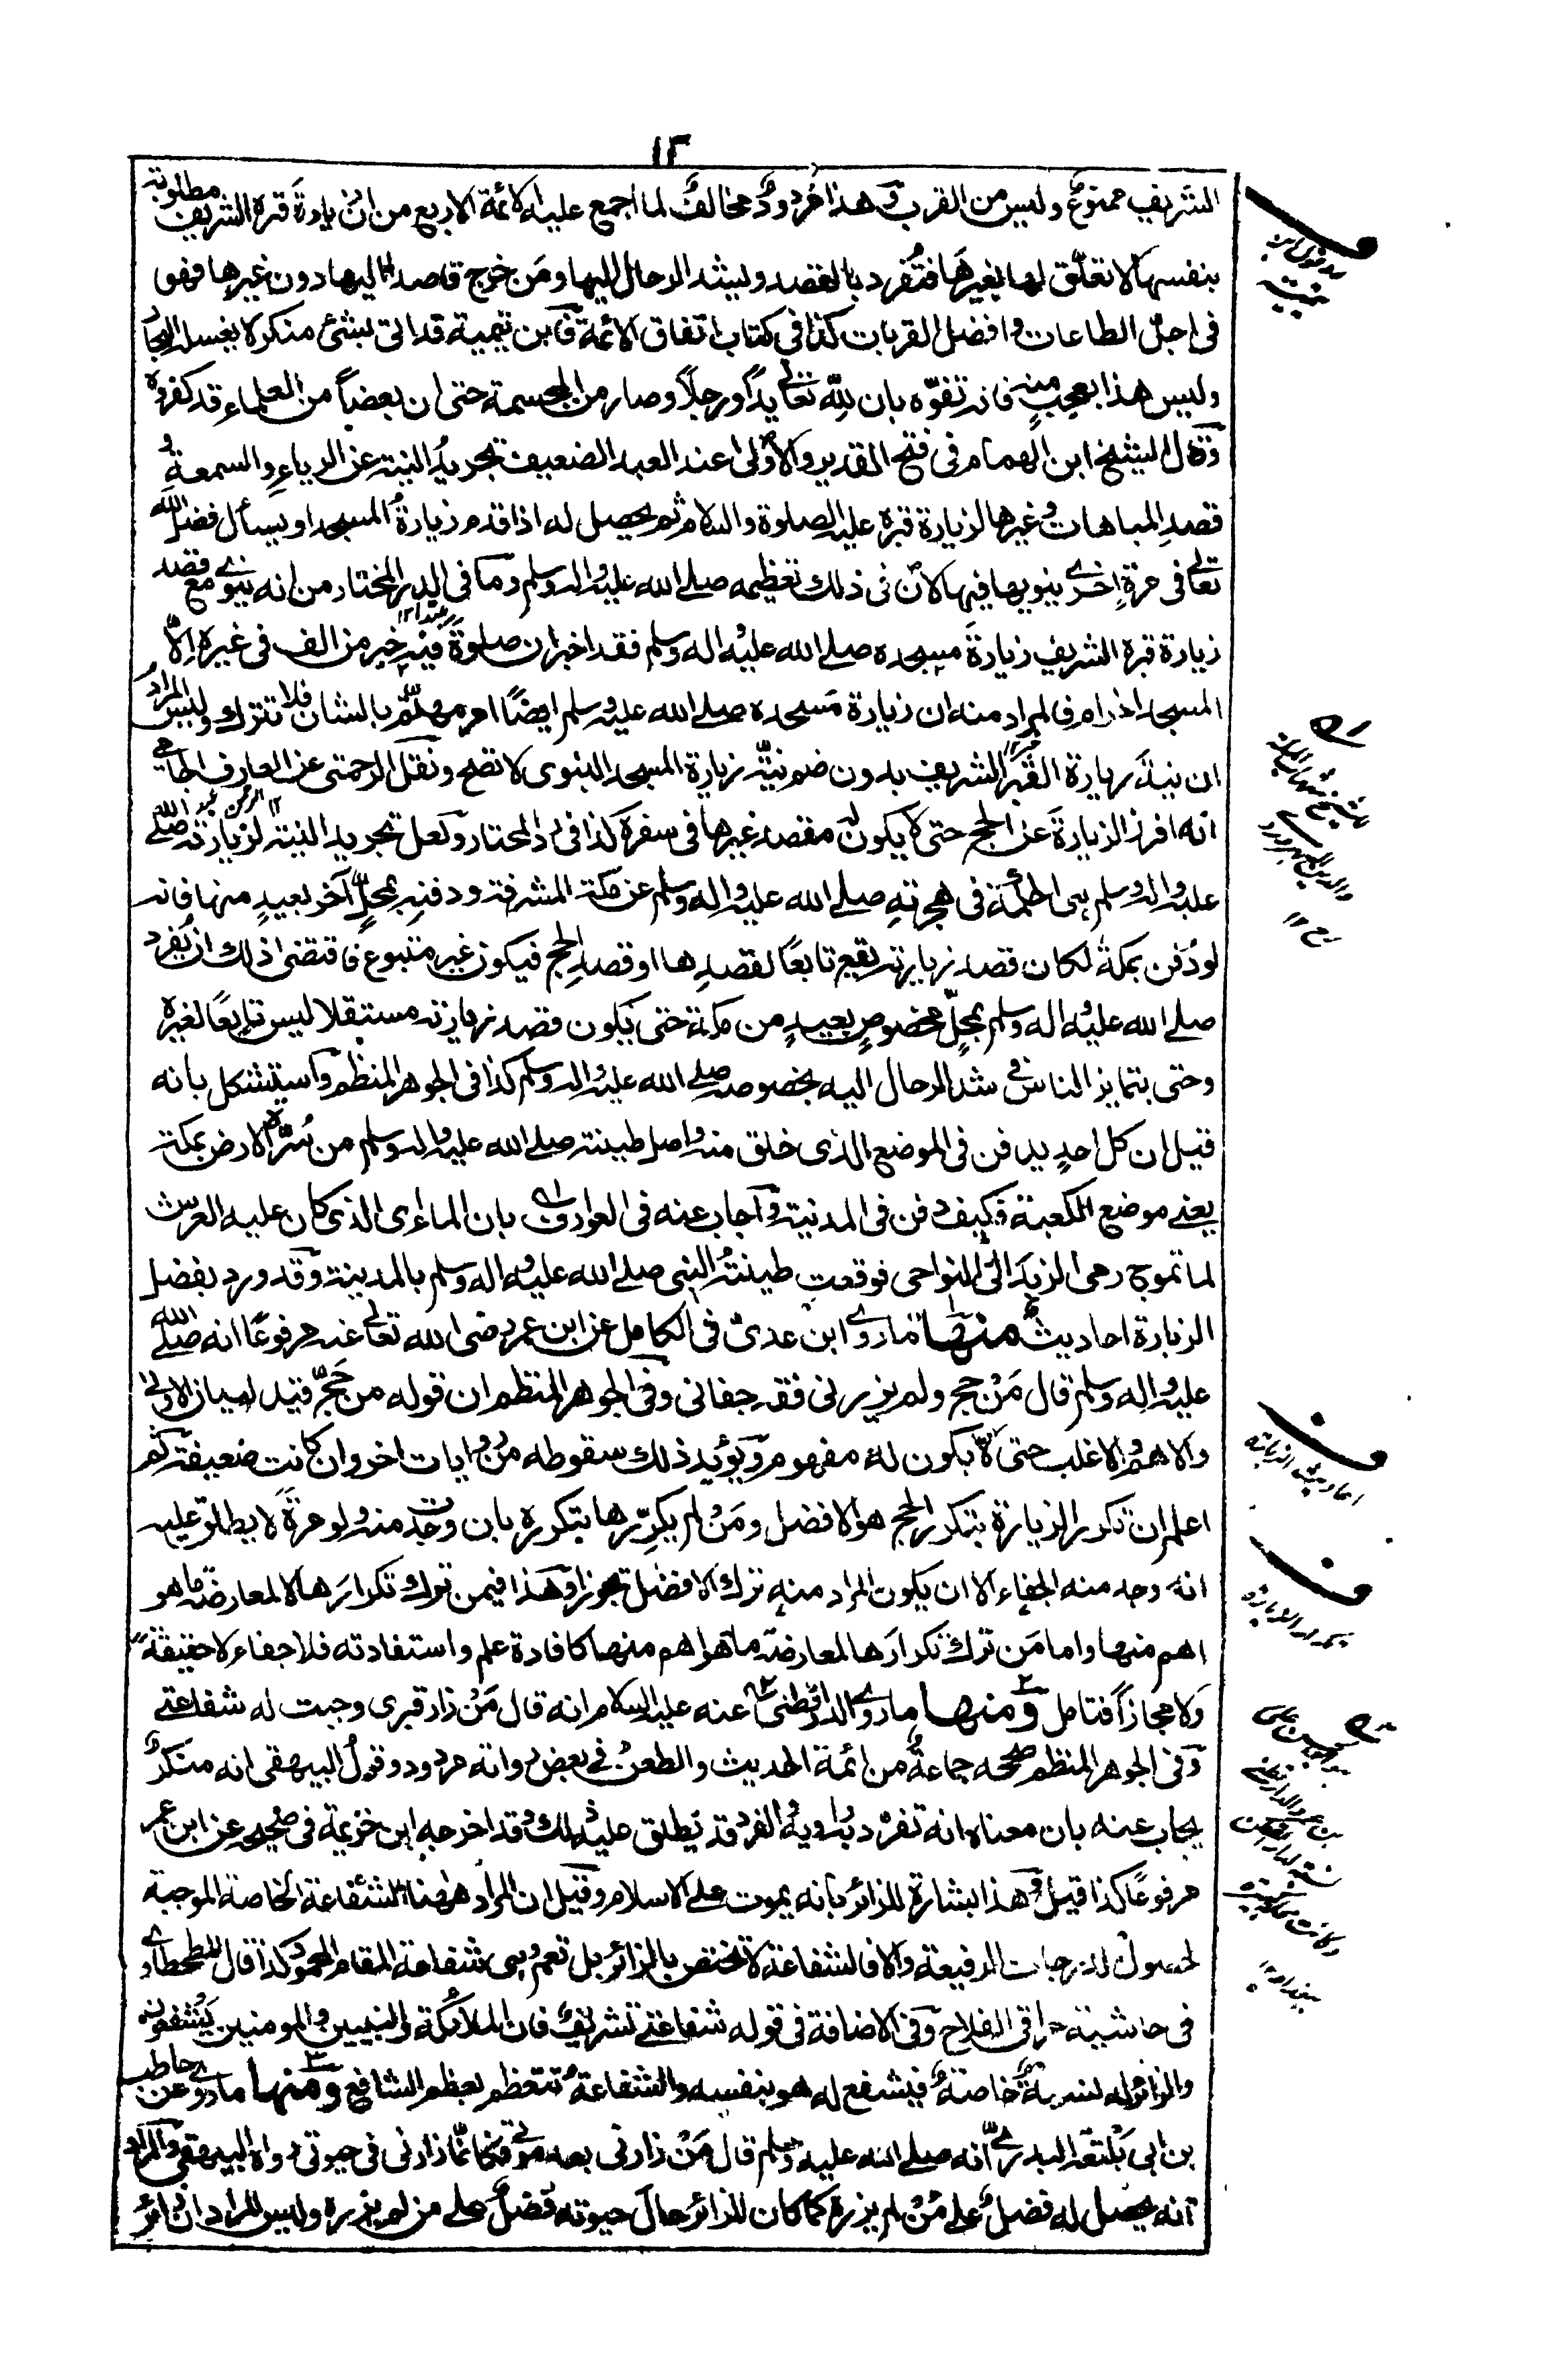 ١٢
الشريف ممنوعٌ وليس من القرب وهذا مردودٌ مخالفٌ لما اجمع عليه الائمة الاربع من ان زيارةَ قبره الشريف مطلوبة
بنفسها لا تعلّق لها بغيرها فتُفرد بالقصد وليشد الرحال اليها ومَن خرج قاصدا اليها دون غيرها فهو
فى اجلّ الطاعات وافضل القربات كذا فى كتاب اتفاق الائمة فابن تيمية قد اتى بشئ منكر لا يغسله البحار
وليس هذا بعجبٍ منه فانه تفوّه بان للّه تعالى يداً ورجلاً وصار من المجسمة حتى ان بعضاً من العلماء قد كفروه
وقال الشيخ ابن الهمام فى فتح القدير والاَولى عند العبد الضعيف تجريدُ النية عن الرياءِ والسمعةِ و
قصدِ المباهات وغيرها لزيارة قبره عليه الصلوة والسلام ثم يحصل له اذا قدم زيارةُ المسجد او يسأل فضل الله
تعالى فى مرةٍ اخرى ينويها فيها لانّ فى ذلك تعظيمه صلى الله عليه واله وسلم وما فى الدر المختار من انه ينوى مع قصد
زيارة قبره الشريف زيارةَ مسجده صلى الله عليه واله وسلم فقد اخبر ان صلوةً فيه خير من الف فى غيره الّا
المسجد الحرام فالمراد منه ان زيارة مَسجده صلى الله عليه وسلم ايضًا امر مهتّم بالشان فلا تترك وليس المرادُ
ان نية زيارة القَبر الشريف بدون ضم نيّة زيارة المسجد النبوى لا تصح ونقل الرحمتى عن العارف الجامى
انه افرز الزيارةَ عن الحج حتى لا يكون له مقصد غيرها فى سفره كذا فى رد المحتار ولعل تجريد النية لزيارته صلى الله
عليه واله وسلم هى الحكمة فى هجرتهِ صلى الله عليه واله وسلم عن مكة المشرفة ودفنهِ بمحلٍّ آخر بعيدٍ منها فانه
لو دُفن بمكةَ لكان قصد زيارته يقع تابعًا لقصدِها او قصدِ الحج فيكون غير متبوع فاقتضى ذلك ان يُفرد
صلى الله عليه واله وسلم بمحلٍّ مخصوصٍ بعيدٍ من مكة حتى يكون قصد زيارته مستقلا ليس تابعًا لغيره
وحتى يتمايز الناس فى شد الرحال اليه بخصوصه صلى الله عليه واله وسلم كذا فى الجوهر المنظم واستشكل بانه
قيل ان كل احدٍ يدفن فى الموضع الذى خلق منه واصل طينته صلى الله عليه واله وسلم من سُرّة الارض بمكة
يعنى موضع الكعبة فكيف دفن فى المدينة واجاب عنه فى العوارف بان الماء الذى كان عليه العرش
لما تموج رمى الزبدَ الى النواحى فوقعت طينتُ النبى صلى الله عليه واله وسلم بالمدينة وقد ورد بفضل
الزيارة احاديث منها ما روى ابن عدىّ فى الكامل عن ابن عمر رضى الله تعالى عنه مرفوعًا انه صلى الله
عليه واله وسلم قال مَنْ حج ولم يزرنى فقد جفانى وفى الجوهر المنظم ان قوله من حَجّ قيد لبيان الاولى
والاهم والاغلب حتى لا يكون له مفهوم ويؤيد ذلك سقوطه من روايات اخر وان كانت ضعيفة ثم
اعلم ان تكرر الزيارة بتكرر الحج هو الافضل ومَنْ لم يكرّرها بتكرره بان وجدت منه ولو مرةً لا يطلق عليه
انه وجد منه الجفاء الا ان يكون المراد منه ترك الافضل تجوزا وهذا فيمن ترك تكرارَها لا لمعارضة ما هو
اهم منها واما مَن ترك تكرارَها لمعارضة ما هو اهم منها كافادة علم واستفادته فلا جفاء لا حقيقةً
ولا مجازاً فتامل ومنها ما روى الدارقطنى عنه عليه السلام انه قال مَنْ زار قبرى وجبت له شفاعتى
وفى الجوهر المنظم صححه جماعةٌ من ائمة الحديث والطعنُ فى بعض رواته مردود وقولُ البيهقى انه منكرٌ
يجاب عنه بان معناه انه تفرّد به راويه والفرد قد يُطلق عليه ذلك وقد اخرجه ابن خزيمة فى صحيحه عن ابن عمر
مرفوعًا كذا قيل وهذا بشارة للزائر بانه يموت على الاسلام وقيل ان المراد ههنا الشفاعة الخاصة الموجبة
لحصول الدرجات الرفيعة والا فالشفاعة لا تختص بالزائر بل تعمّ وهى شفاعة المقام المحمود كذا قال الطحطاوى
فى حاشية مراقى الفلاح وفى الاضافة فى قوله شفاعتى تشريفٌ فان الملائكة والنبيين والمومنين يَشفعون
والزائر له نسبةٌ خاصةٌ فيشفع له هو بنفسه والشفاعةُ تتعظم بعظم الشافع ومنها ما روى عن حاطب
بن ابى بَلتعة البدرىّ انه صلى الله عليه وسلم قال مَنْ زارنى بعد موتى فكانّما زارنى فى حيوتى رواه البيهقى والمراد
انه يحصل له فضلٌ على مَنْ لم يزره كما كان للزائر حالَ حيوته فضلٌ على من لم يزره وليس المراد ان زائر
احاديث الزيارة